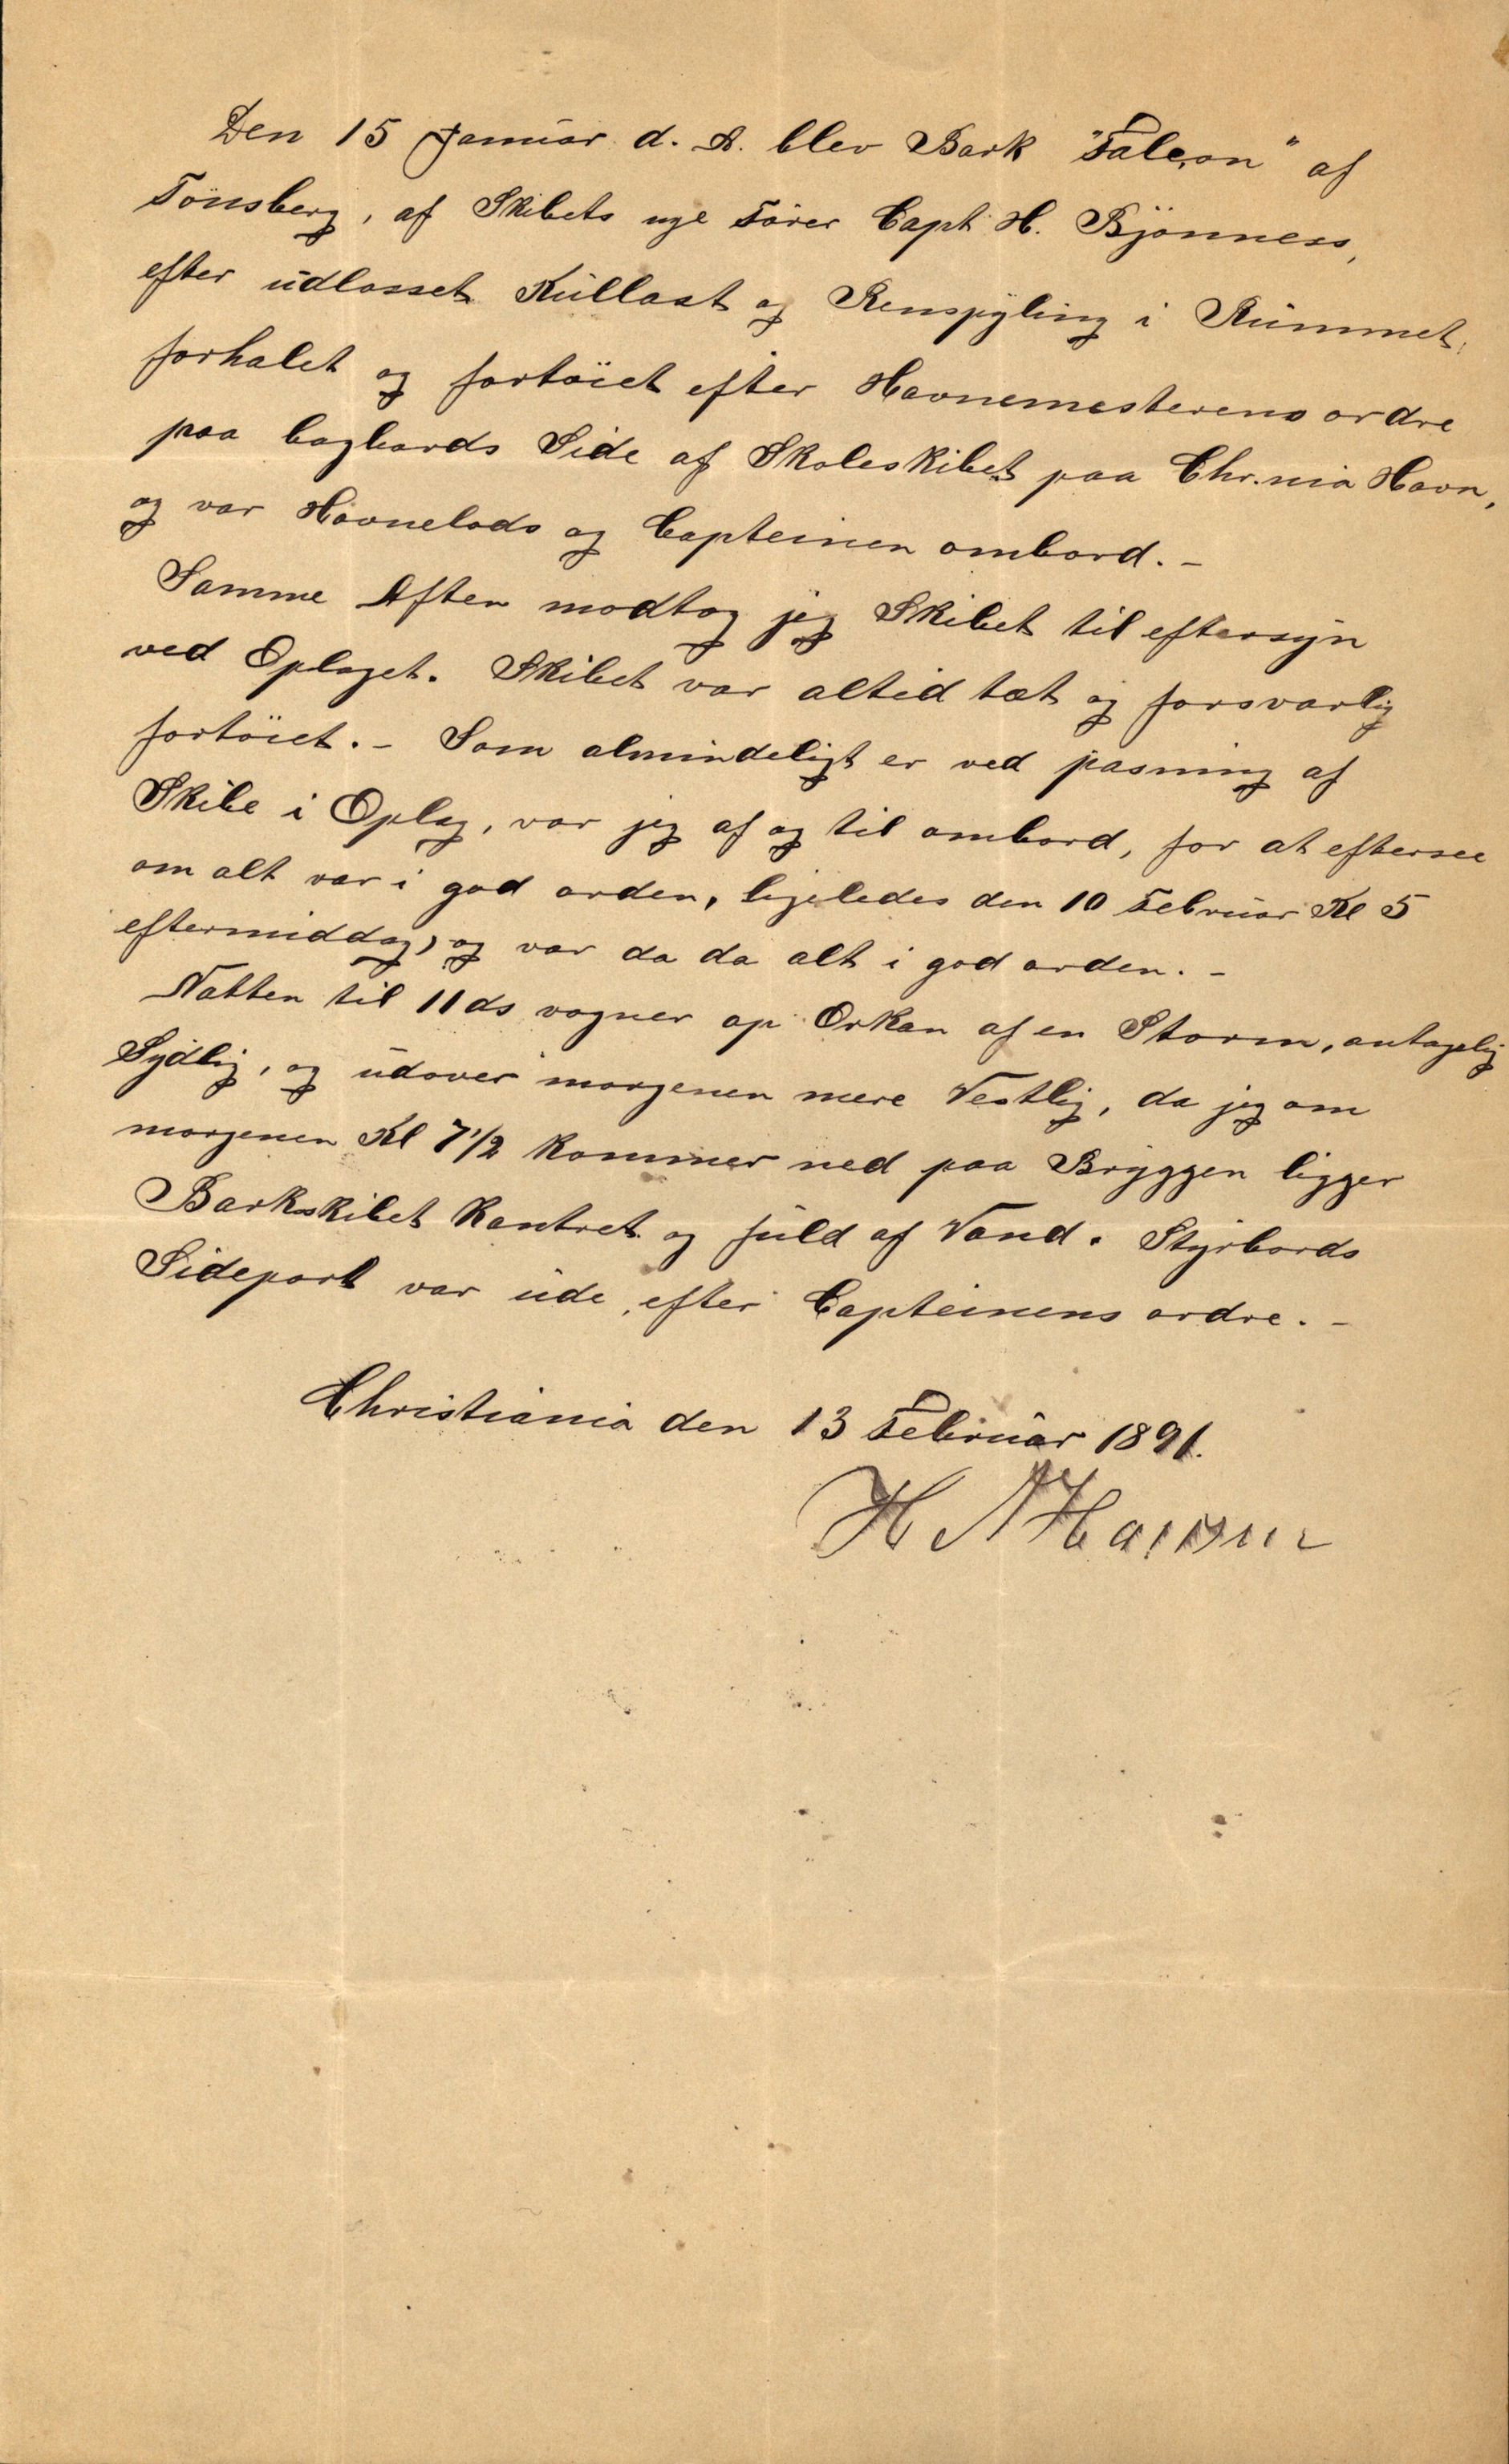 Den 15 Januar d. A. blev Bark "Falcon" af
Tönsberg, af Skibets nye Förer Capt. H. Bjönness,
efter udlosset Kullast og Renspyling i Rummet,
forhalet og fortöiet efter Havnemesterens ordre
paa bagbords Side af Skoleskibet paa Chr.nia Havn,
og var Havnelods og Capteinen ombord. -
Samme Aften modtog jeg Skibet til eftersyn
ved Oplaget. Skibet var altid tæt og forsvarlig
fortöiet. - Som almindeligt er ved pasning af
Skibe i Oplag, var jeg af og til ombord, for at eftersee
om alt var i god orden, ligeledes den 10 Februar Kl 5
eftermiddag, og var da da alt i god orden. -
Natten til 11 ds vogner op Orkan af en Storm, antagelig
Sydlig, og udover morgenen mere Vestlig, da jeg om
morgenen Kl 7 1/2 kommer ned paa Bryggen ligger
Barkskibet Kantret og fuld af Vand. Styrbords
Sideport var ude, efter Capteinens ordre. -
Christiania den 13 Februar 1891.
H N Hansen